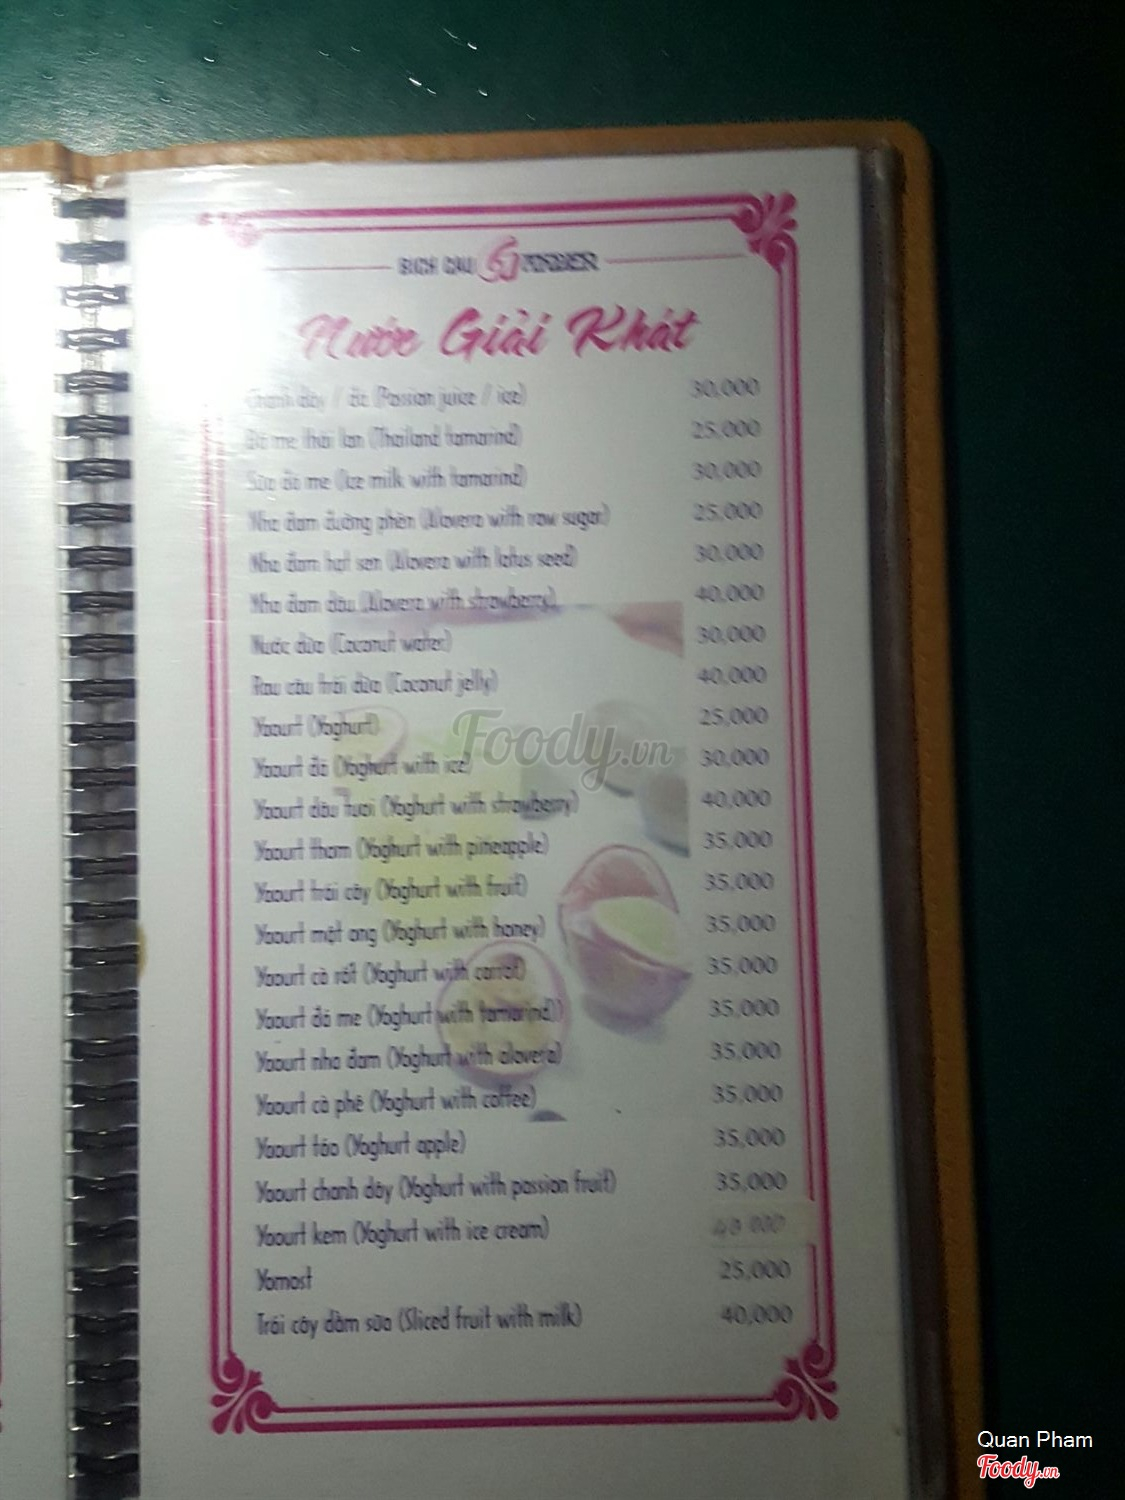 BICH CAU
Nước Giải Khát
Chanh dây / đá (Passion juice / ice) 30,000
Đá me thái lan (Thailand tamarind) 25,000
Sữa đá me (Ice milk with tamarind) 30,000
Nha đam đường phèn (Alovera with raw sugar) 25,000
Nha đam hạt sen (Alovera with lotus seed) 30,000
Nha đam dâu (Alovera with strawberry) 40,000
Nước dừa (Coconut water) 30,000
Rau câu trái dừa (Coconut jelly) 40,000
Yaourt (Yoghurt) 25,000
Yaourt đá (Yoghurt with ice) 30,000
Yaourt dâu tươi (Yoghurt with strawberry) 40,000
Yaourt thơm (Yoghurt with pineapple) 35,000
Yaourt trái cây (Yoghurt with fruit) 35,000
Yaourt mật ong (Yoghurt with honey) 35,000
Yaourt cà rốt (Yoghurt with carrot) 35,000
Yaourt đá me (Yoghurt with tamarind)) 35,000
Yaourt nha đam (Yoghurt with alovera) 35,000
Yaourt cà phê (Yoghurt with coffee) 35,000
Yaourt táo (Yoghurt apple) 35,000
Yaourt chanh dây (Yoghurt with passion fruit) 35,000
Yaourt kem (Yoghurt with ice cream)
Yomost 25,000
Trái cây dầm sữa (Sliced fruit with milk) 40,000
Foody.vn
Quan Pham
Foody.vn